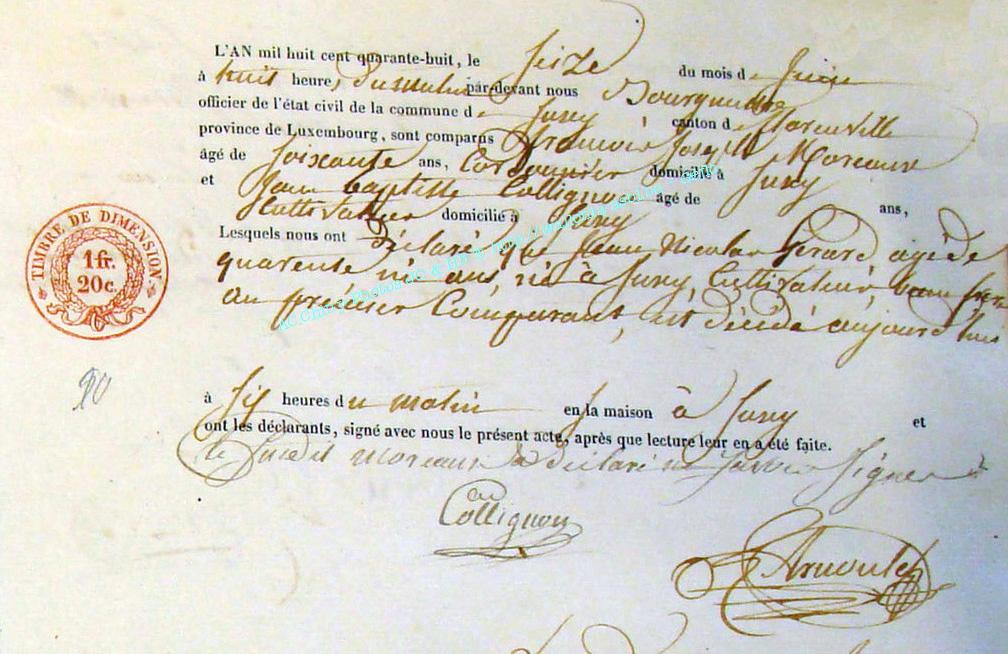 L'AN mil huit cent quarante-huit, le Seize du mois d
à huit heures du matin par-devant nous Bourgmestre
officier de l'état civil de la commune d Jusy canton d
province de Luxembourg, sont comparus François Joseph Moreaux
âgé de soixante ans, Cordonnier domicilié à Jusy
et Jean Baptiste Collignon âgé de ans,
Cultivateur domicilié à Jusy
Lesquels nous ont déclaré que Jean Nicolas Gerard, agé de
quarente ans, né à Jusy, Cultivateur, beau frere
au premier Comparant, est décédé aujourd'hui
TIMBRE DE DIMENSION
1 fr.
20 c.
à six heures du matin en la maison à Jusy et
ont les déclarants, signé avec nous le présent acte, après que lecture leur en a été faite.
le susdit moreaux a déclaré ne savoir signer
Collignon
Arnould